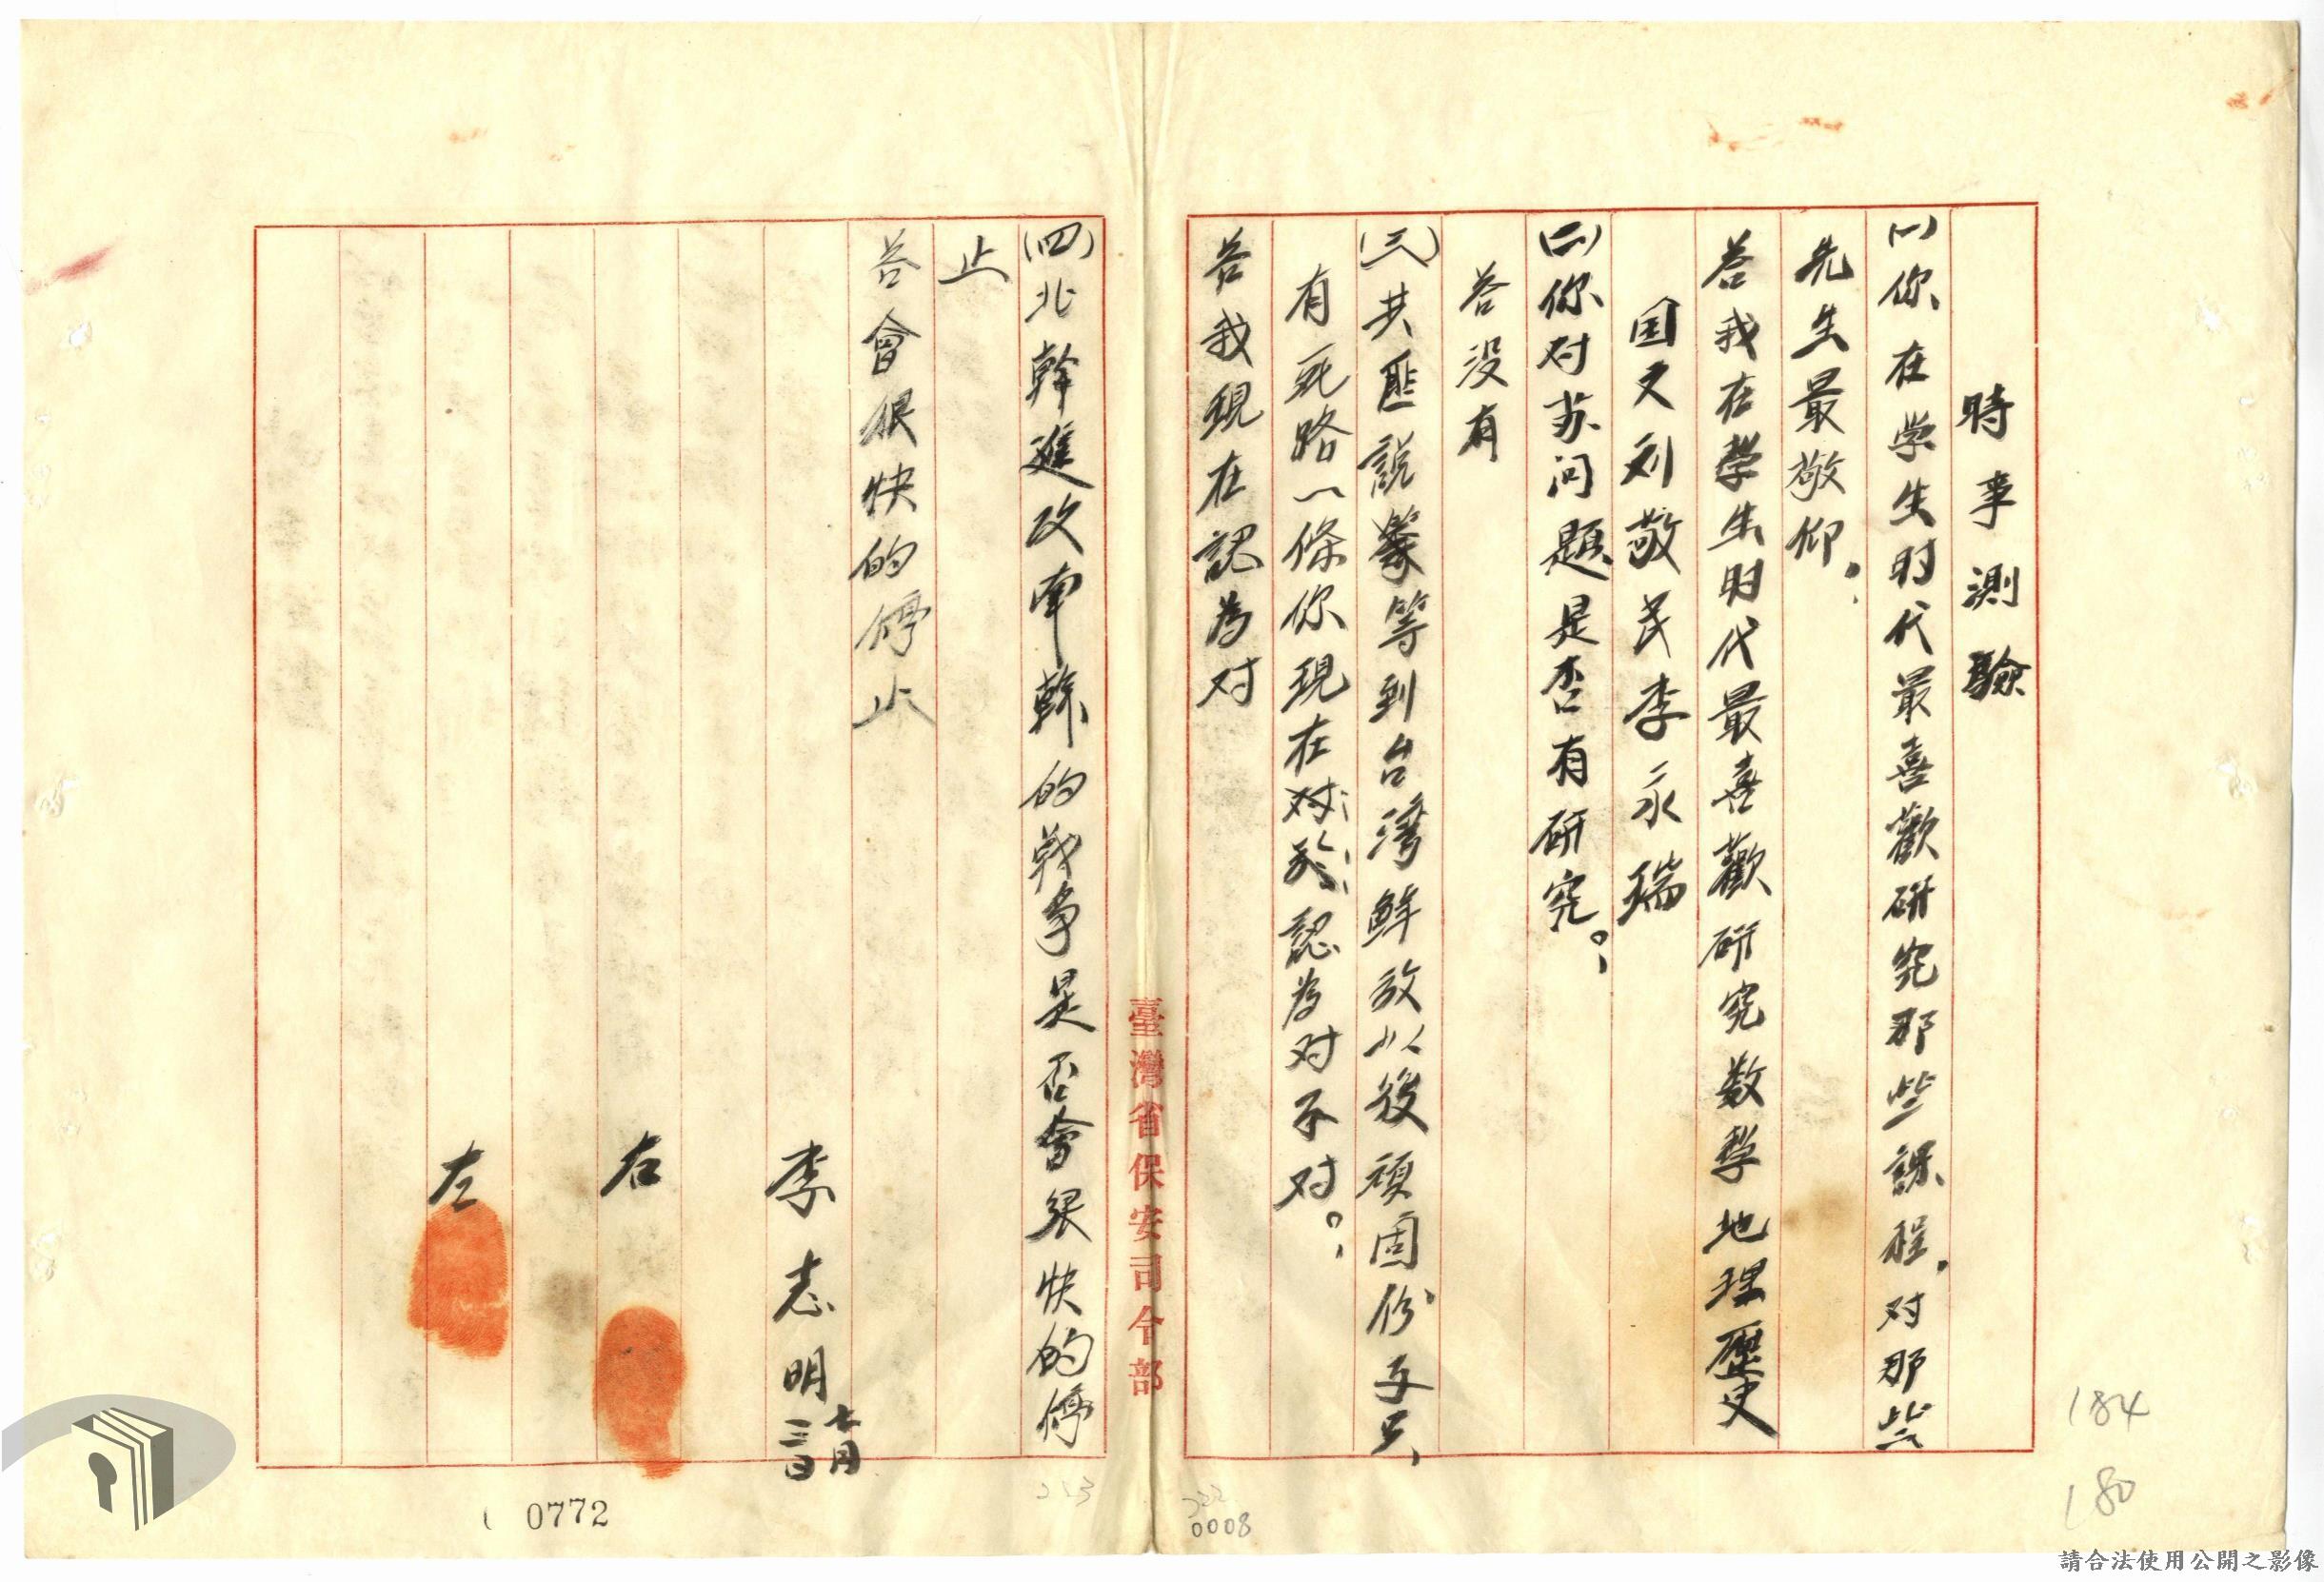 時事測驗
(一)你在学生时代最喜歡研究那些課程.对那些
先生最敬仰。
答我在學生时代最喜歡研究数學地理歷史
国文刘敬民李永瑞
(二)你对苏问题是否有研究。
答没有
(三)共匪說等到台灣鮮放以後頑固份子只
有死路一條你現在对於認為对不对。
答我現在認為对
(四)北韓進攻南韓的戰争是否會很快的停
止
答會很快的停止
李志明
七月
三日
右
左
臺灣省保安司令部
0772
223
222
0008
184
180
請合法使用公開之影像